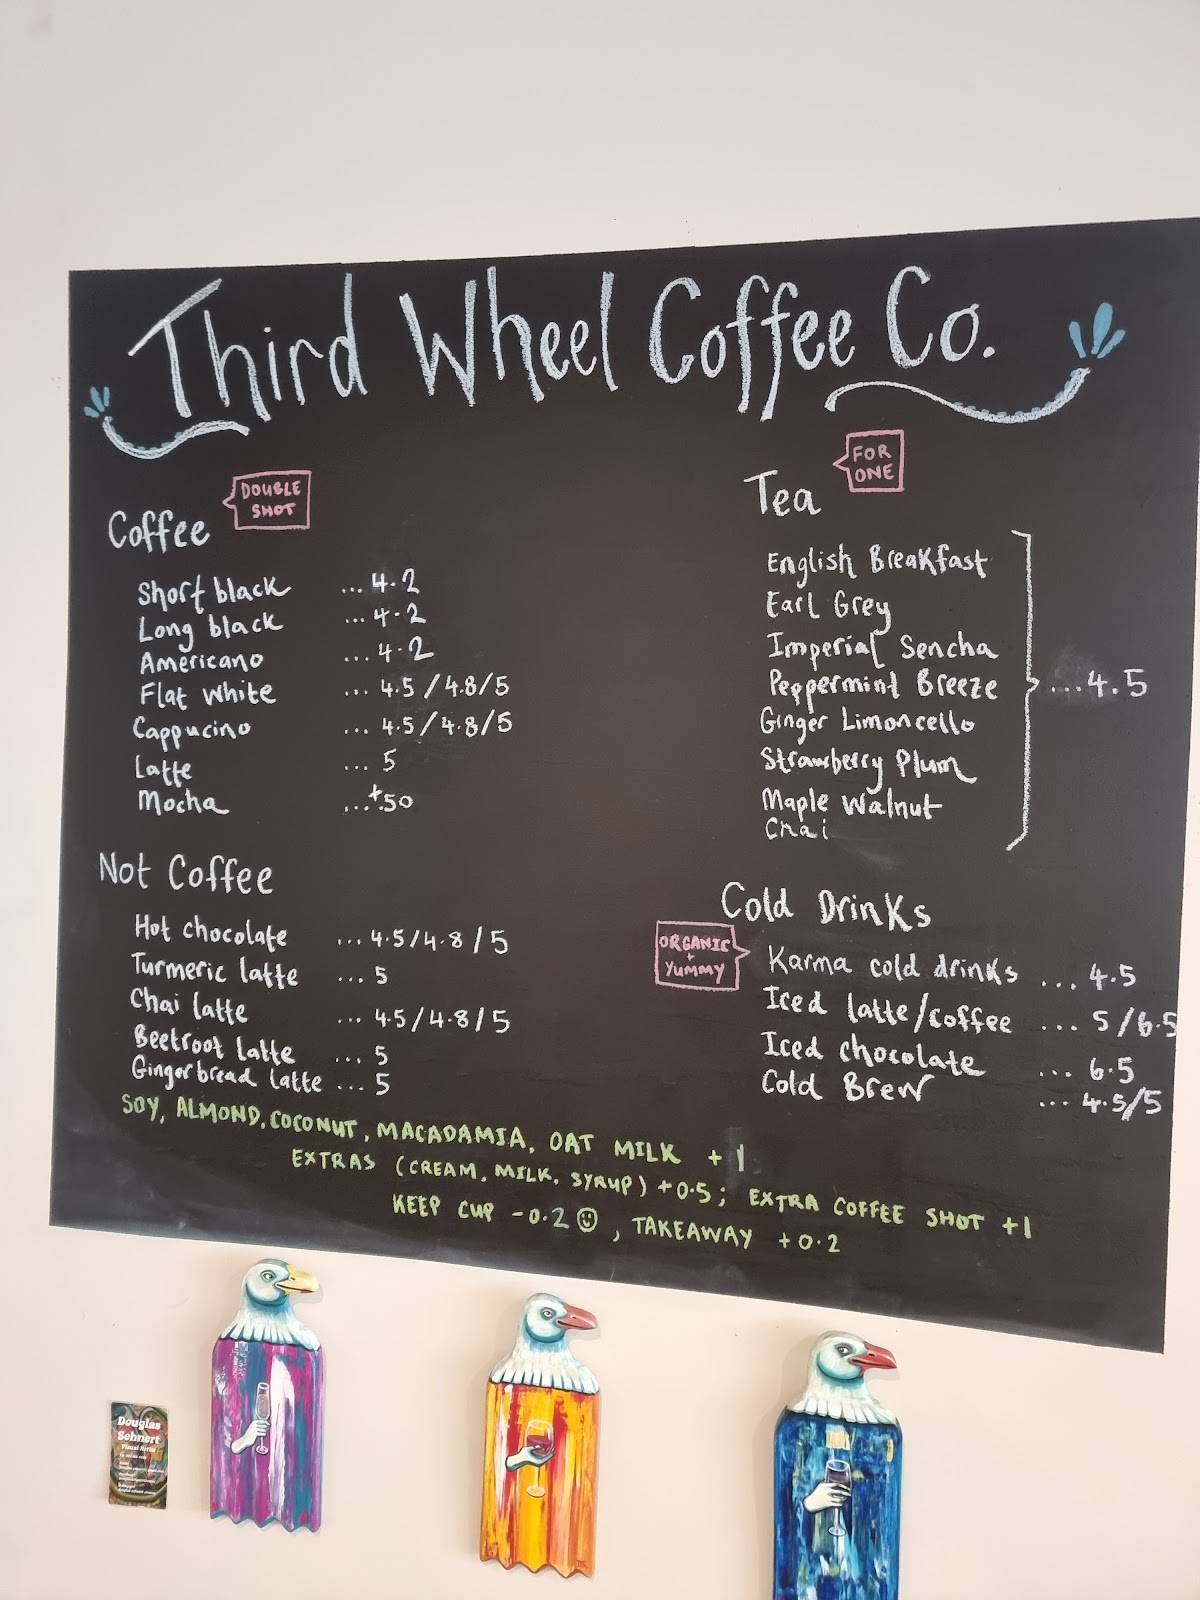 Third Wheel Coffee Co.
Coffee
DOUBLE
SHOT
Short black ... 4.2
Long black ... 4.2
Americano ... 4.2
Flat white ... 4.5/4.8/5
Cappucino ... 4.5/4.8/5
Latte ... 5
Mocha ...+.50
Not Coffee
Hot chocolate ... 4.5/4.8/5
Turmeric latte ... 5
Chai latte ... 4.5/4.8/5
Beetroot latte ... 5
Gingerbread latte ... 5
Tea
FOR
ONE
English Breakfast
Earl Grey
Imperial Sencha
Peppermint Breeze ...4.5
Ginger Limoncello
Strawberry Plum
Maple Walnut
Chai
Cold Drinks
ORGANIC
+
YUMMY
Karma cold drinks ... 4.5
Iced latte/coffee ... 5/6.5
Iced chocolate ... 6.5
Cold Brew ... 4.5/5
SOY, ALMOND, COCONUT, MACADAMIA, OAT MILK +1
EXTRAS (CREAM, MILK, SYRUP) +0.5; EXTRA COFFEE SHOT +1
KEEP CUP -0.2 ☺, TAKEAWAY +0.2
Douglas
Sehnert
Visual Artist